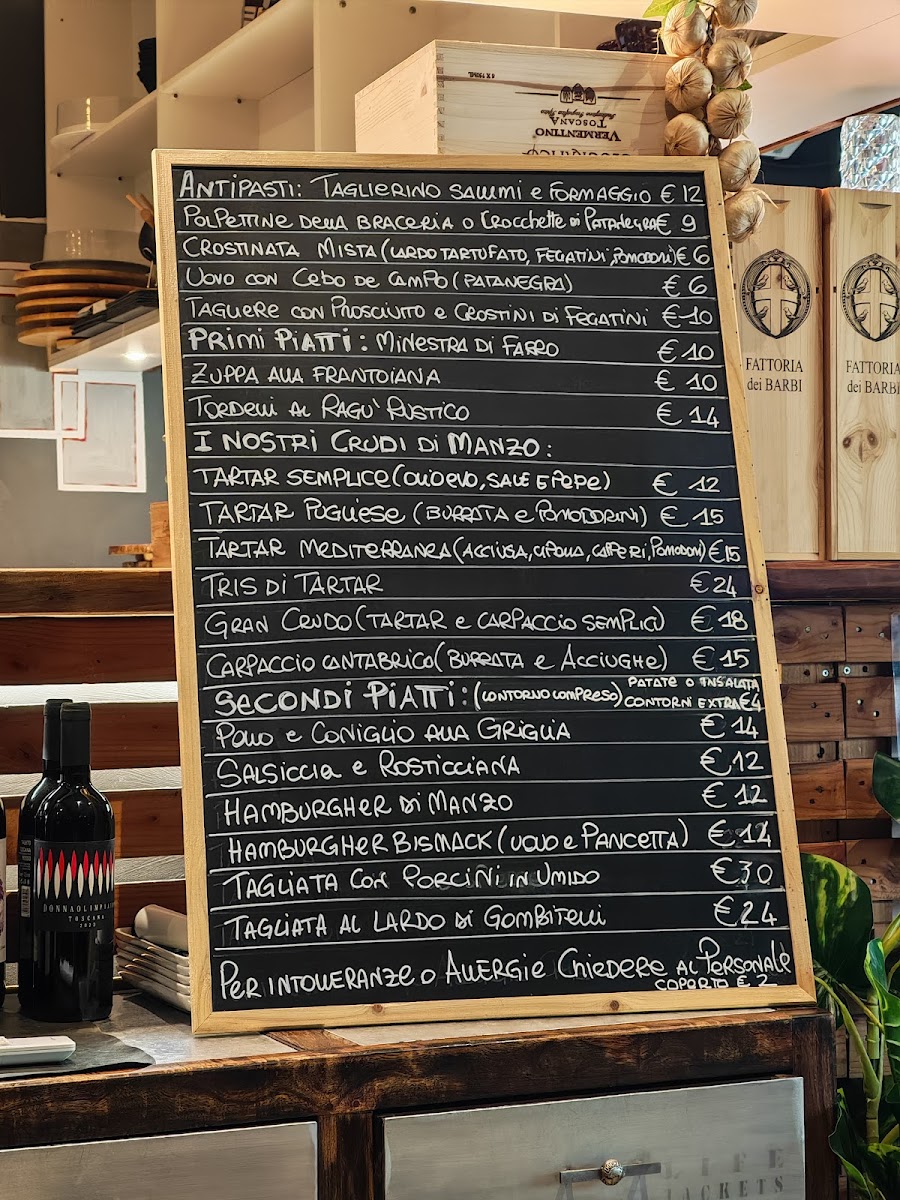 6 X 750ML
VERMENTINO
TOSCANA
ANTIPASTI: TAGLIERINO SALUMI e FORMAGGIO € 12
POLPETTINE DELLA BRACERIA O CROCCHETTE DI PATANEGRA € 9
CROSTINATA MISTA (LARDO TARTUFATO, FEGATINI, POMODORI) € 6
UOVO CON CEBO DE CAMPO (PATANEGRA) € 6
TAGLIERE CON PROSCIUTTO E CROSTINI DI FEGATINI € 10
PRIMI PIATTI: MINESTRA DI FARRO € 10
ZUPPA ALLA FRANTOIANA € 10
TORDELLI AL RAGU' RUSTICO € 14
I NOSTRI CRUDI DI MANZO:
TARTAR SEMPLICE (OLIO EVO, SALE E PEPE) € 12
TARTAR PUGLIESE (BURRATA e POMODORINI) € 15
TARTAR MEDITERRANEA (ACCIUGA, CIPOLLA, CAPPERI, POMODORI) € 15
TRIS DI TARTAR € 24
GRAN CRUDO (TARTAR e CARPACCIO SEMPLICI) € 18
CARPACCIO CANTABRICO (BURRATA e ACCIUGHE) € 15
SECONDI PIATTI: (CONTORNO COMPRESO) PATATE O INSALATA
CONTORNI EXTRA € 4
POLLO e CONIGLIO ALLA GRIGLIA € 14
SALSICCIA e ROSTICCIANA € 12
HAMBURGHER DI MANZO € 12
HAMBURGHER BISMACK (UOVO e PANCETTA) € 14
TAGLIATA CON PORCINI IN UMIDO € 30
TAGLIATA AL LARDO DI GOMBITELLI € 24
PER INTOLLERANZE O ALLERGIE CHIEDERE AL PERSONALE
COPERTO € 2
FATTORIA
dei BARBI
FATTORIA
dei BARBI
TOSCANA
LIFE
JACKETS